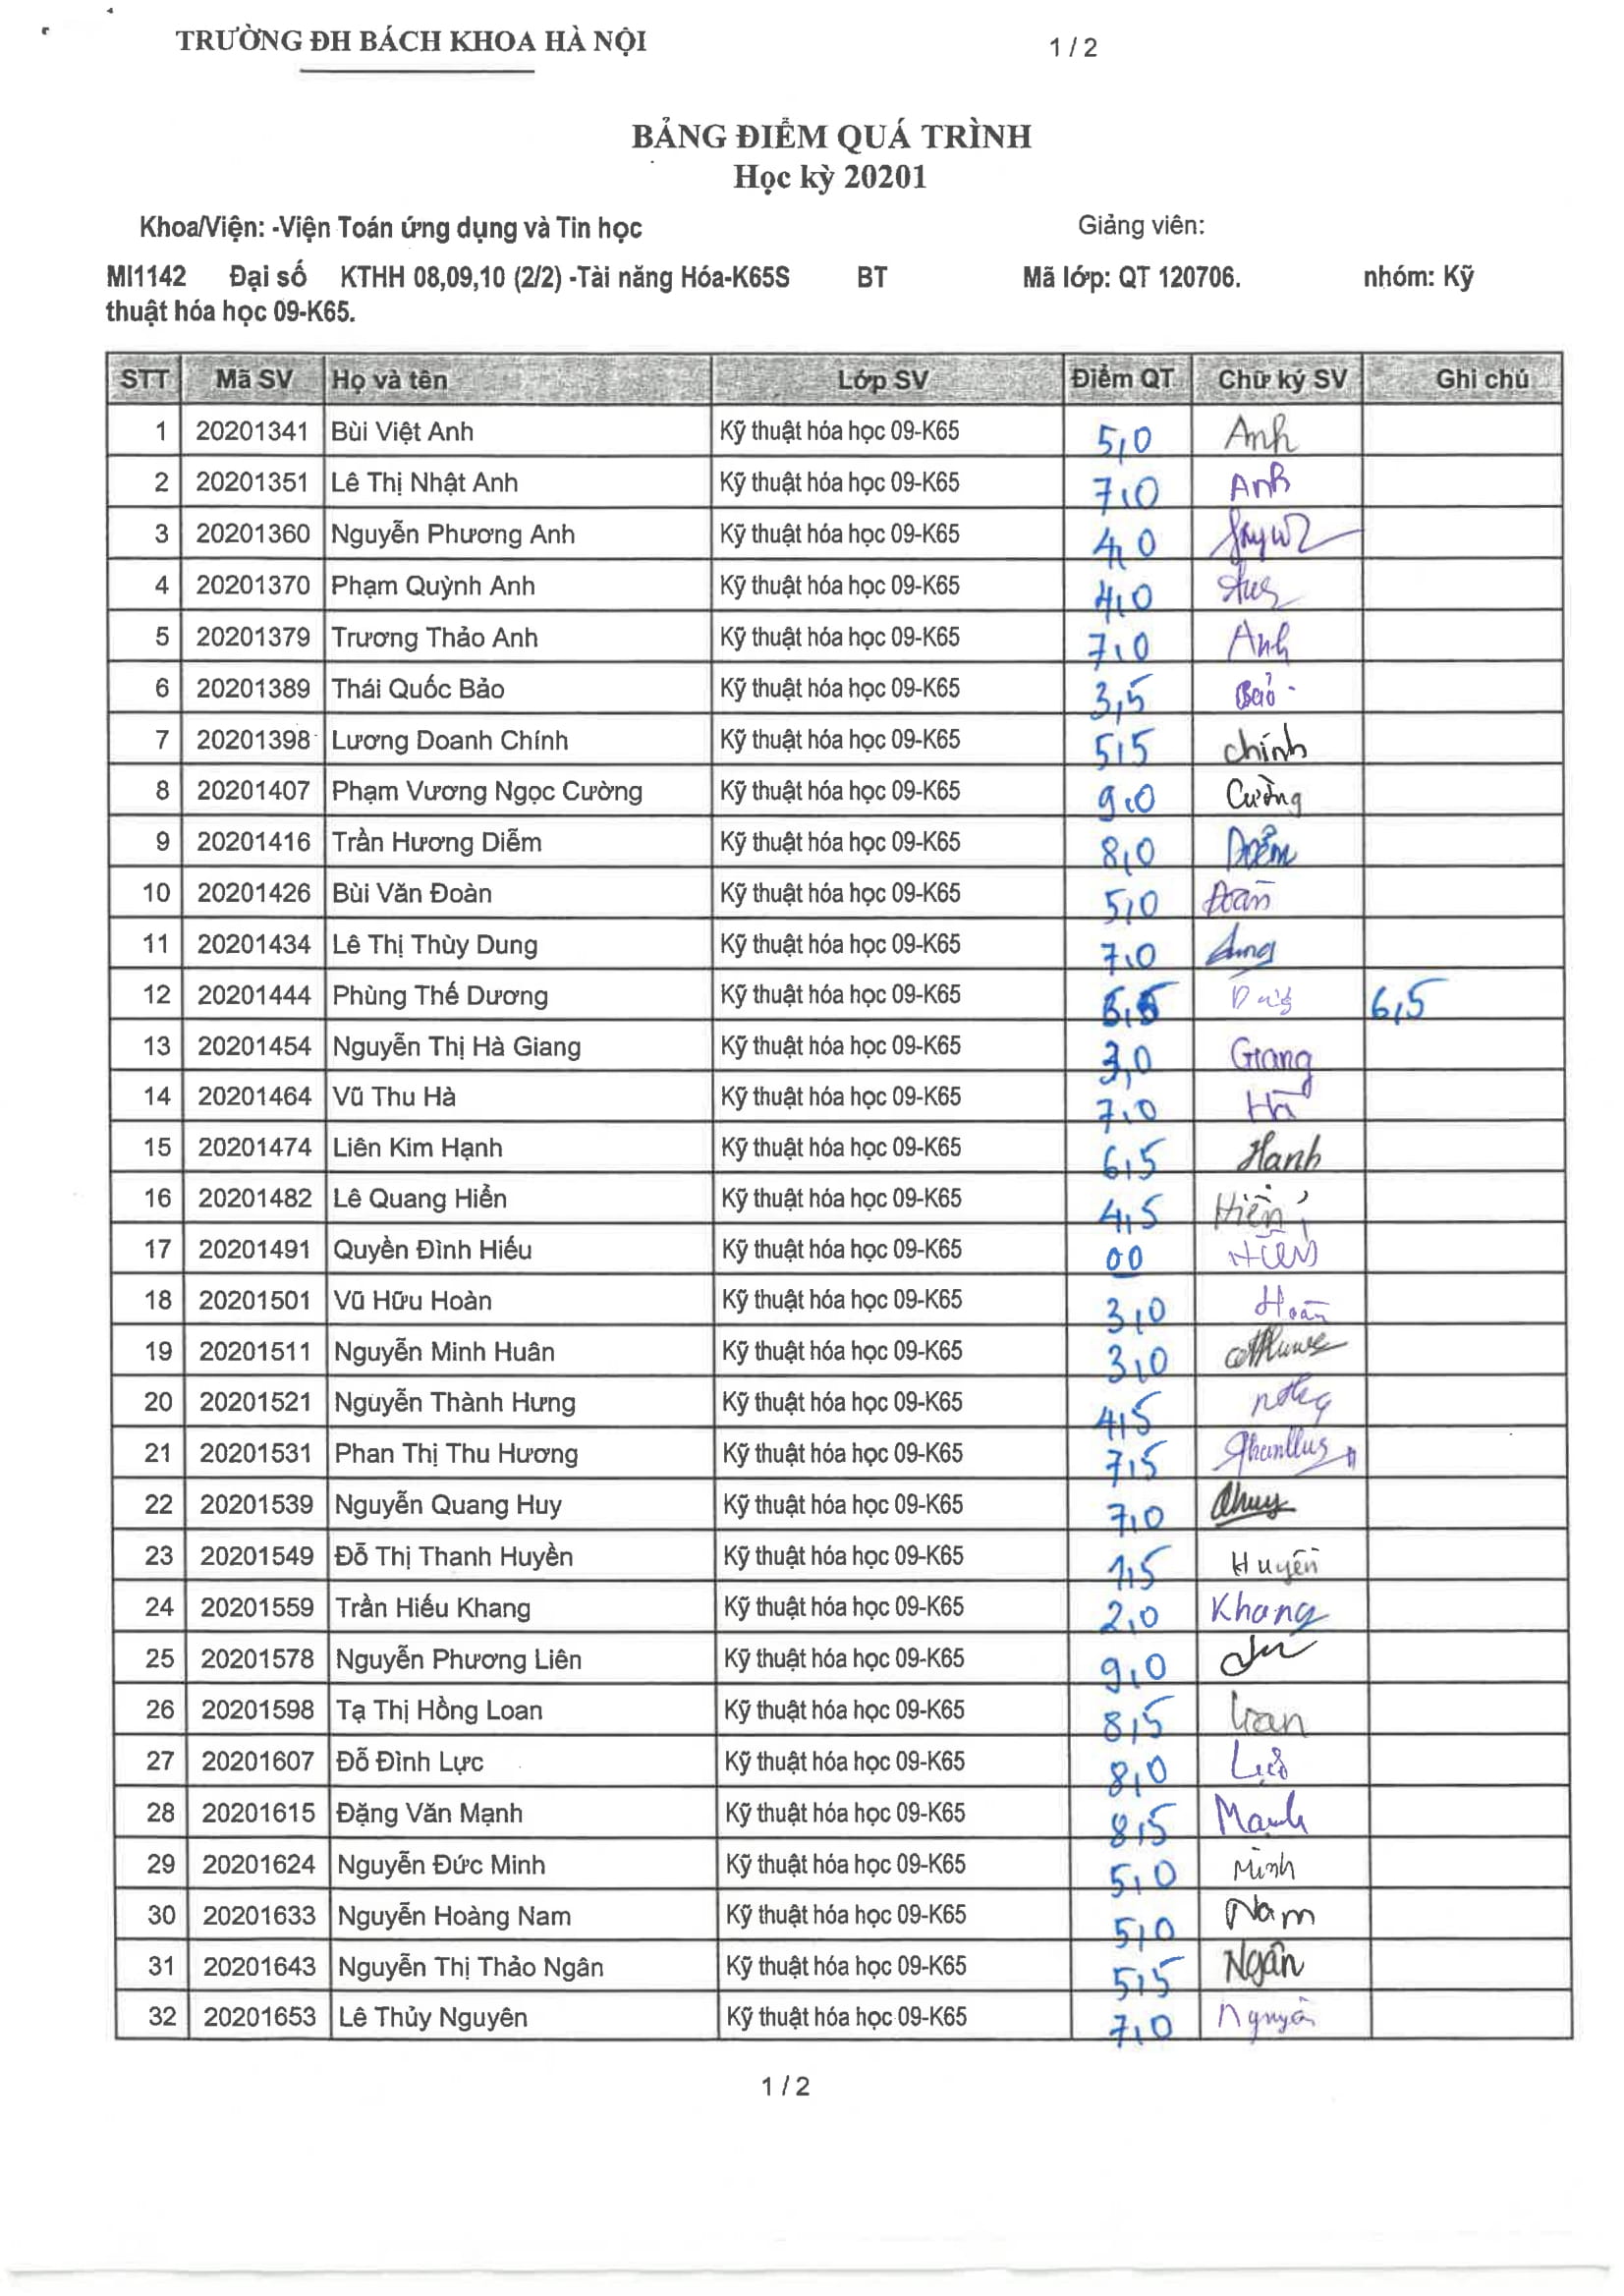 TRƯỜNG ĐH BÁCH KHOA HÀ NỘI 1 / 2
BẢNG ĐIỂM QUÁ TRÌNH
Học kỳ 20201
Khoa/Viện: -Viện Toán ứng dụng và Tin học Giảng viên:
MI1142 Đại số KTHH 08,09,10 (2/2) -Tài năng Hóa-K65S BT Mã lớp: QT 120706. nhóm: Kỹ
thuật hóa học 09-K65.
STT Mã SV Họ và tên Lớp SV Điểm QT Chữ ký SV Ghi chú
1 20201341 Bùi Việt Anh Kỹ thuật hóa học 09-K65 5,0 Anh
2 20201351 Lê Thị Nhật Anh Kỹ thuật hóa học 09-K65 7,0 Anh
3 20201360 Nguyễn Phương Anh Kỹ thuật hóa học 09-K65 4,0
4 20201370 Phạm Quỳnh Anh Kỹ thuật hóa học 09-K65 4,0
5 20201379 Trương Thảo Anh Kỹ thuật hóa học 09-K65 7,0 Anh
6 20201389 Thái Quốc Bảo Kỹ thuật hóa học 09-K65 3,5 Bảo
7 20201398 Lương Doanh Chính Kỹ thuật hóa học 09-K65 5,5 chính
8 20201407 Phạm Vương Ngọc Cường Kỹ thuật hóa học 09-K65 9,0 Cường
9 20201416 Trần Hương Diễm Kỹ thuật hóa học 09-K65 8,0 Diễm
10 20201426 Bùi Văn Đoàn Kỹ thuật hóa học 09-K65 5,0 Đoàn
11 20201434 Lê Thị Thùy Dung Kỹ thuật hóa học 09-K65 7,0 Dung
12 20201444 Phùng Thế Dương Kỹ thuật hóa học 09-K65 6,5 6,5
13 20201454 Nguyễn Thị Hà Giang Kỹ thuật hóa học 09-K65 3,0 Giang
14 20201464 Vũ Thu Hà Kỹ thuật hóa học 09-K65 7,0 Hà
15 20201474 Liên Kim Hạnh Kỹ thuật hóa học 09-K65 6,5 Hạnh
16 20201482 Lê Quang Hiển Kỹ thuật hóa học 09-K65 4,5 Hiển
17 20201491 Quyền Đình Hiếu Kỹ thuật hóa học 09-K65 00
18 20201501 Vũ Hữu Hoàn Kỹ thuật hóa học 09-K65 3,0 Hoàn
19 20201511 Nguyễn Minh Huân Kỹ thuật hóa học 09-K65 3,0
20 20201521 Nguyễn Thành Hưng Kỹ thuật hóa học 09-K65 4,5
21 20201531 Phan Thị Thu Hương Kỹ thuật hóa học 09-K65 7,5
22 20201539 Nguyễn Quang Huy Kỹ thuật hóa học 09-K65 7,0
23 20201549 Đỗ Thị Thanh Huyền Kỹ thuật hóa học 09-K65 1,5 Huyền
24 20201559 Trần Hiếu Khang Kỹ thuật hóa học 09-K65 2,0 Khang
25 20201578 Nguyễn Phương Liên Kỹ thuật hóa học 09-K65 9,0
26 20201598 Tạ Thị Hồng Loan Kỹ thuật hóa học 09-K65 8,5 Loan
27 20201607 Đỗ Đình Lực Kỹ thuật hóa học 09-K65 8,0 Lực
28 20201615 Đặng Văn Mạnh Kỹ thuật hóa học 09-K65 8,5 Mạnh
29 20201624 Nguyễn Đức Minh Kỹ thuật hóa học 09-K65 5,0 Minh
30 20201633 Nguyễn Hoàng Nam Kỹ thuật hóa học 09-K65 5,0 Nam
31 20201643 Nguyễn Thị Thảo Ngân Kỹ thuật hóa học 09-K65 5,5 Ngân
32 20201653 Lê Thủy Nguyên Kỹ thuật hóa học 09-K65 7,0 Nguyên
1 / 2